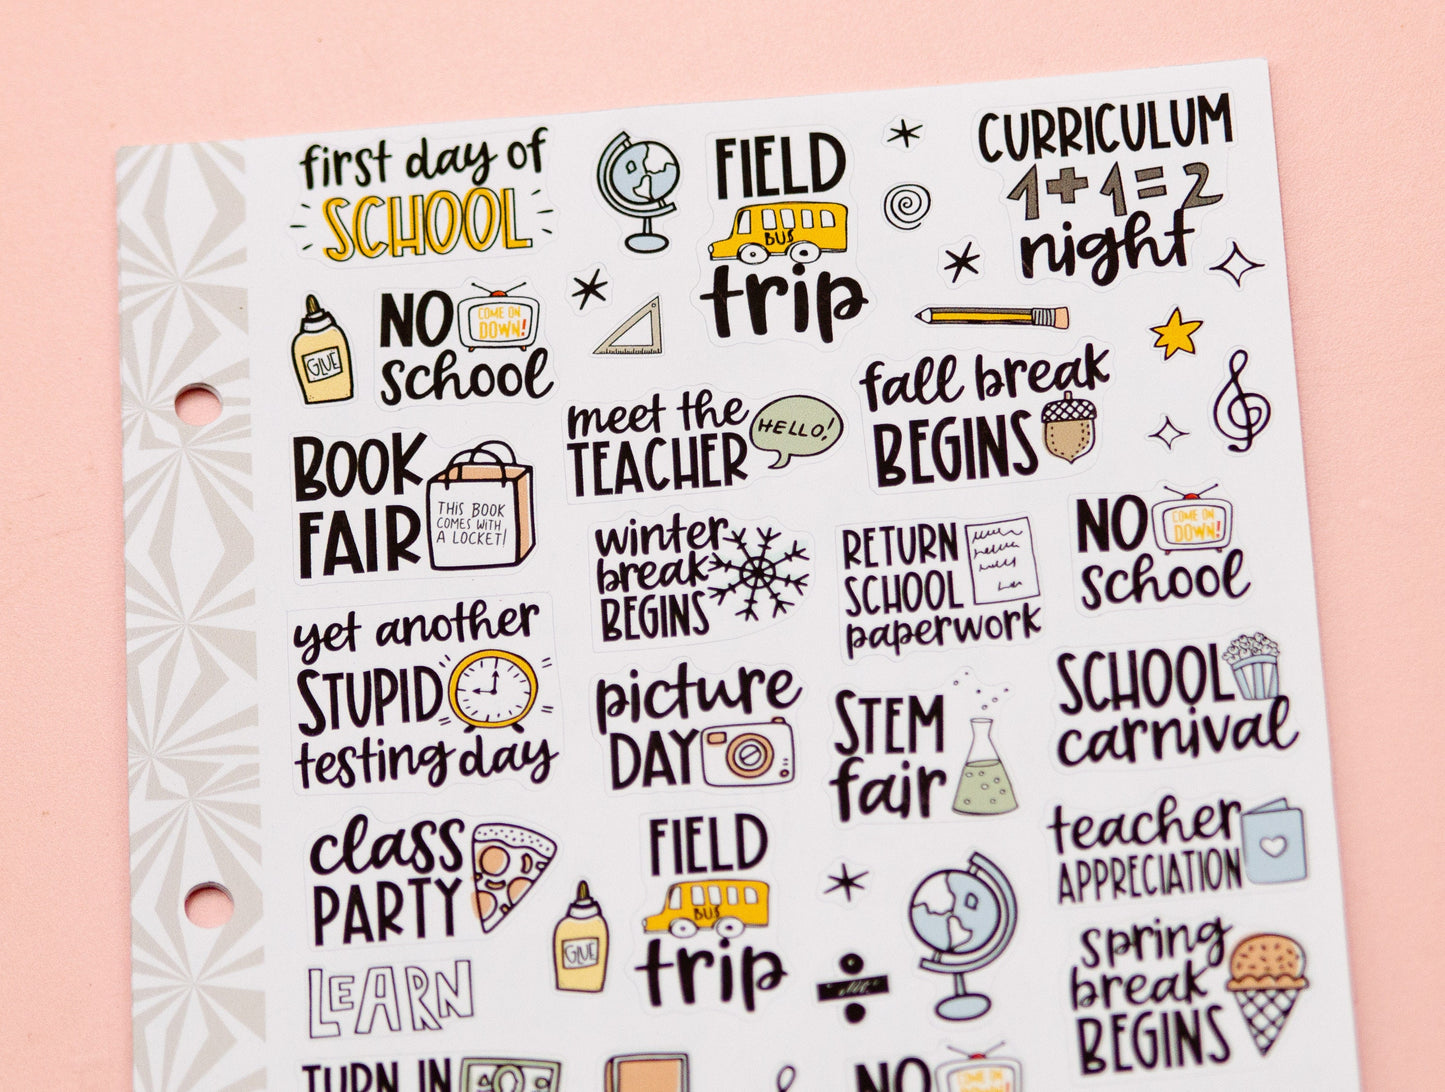 first day of
SCHOOL
FIELD
BUS
trip
CURRICULUM
1+1=2
night
GLUE
NO
COME ON
DOWN!
school
meet the
TEACHER
HELLO!
fall break
BEGINS
BOOK
FAIR
THIS BOOK
COMES WITH
A LOCKET!
winter
break
BEGINS
RETURN
SCHOOL
paperwork
NO
COME ON
DOWN!
school
yet another
STUPID
testing day
picture
DAY
STEM
fair
SCHOOL
carnival
class
PARTY
GLUE
FIELD
BUS
trip
teacher
APPRECIATION
LEARN
spring
break
BEGINS
TURN IN
NO
COME ON
DOWN!